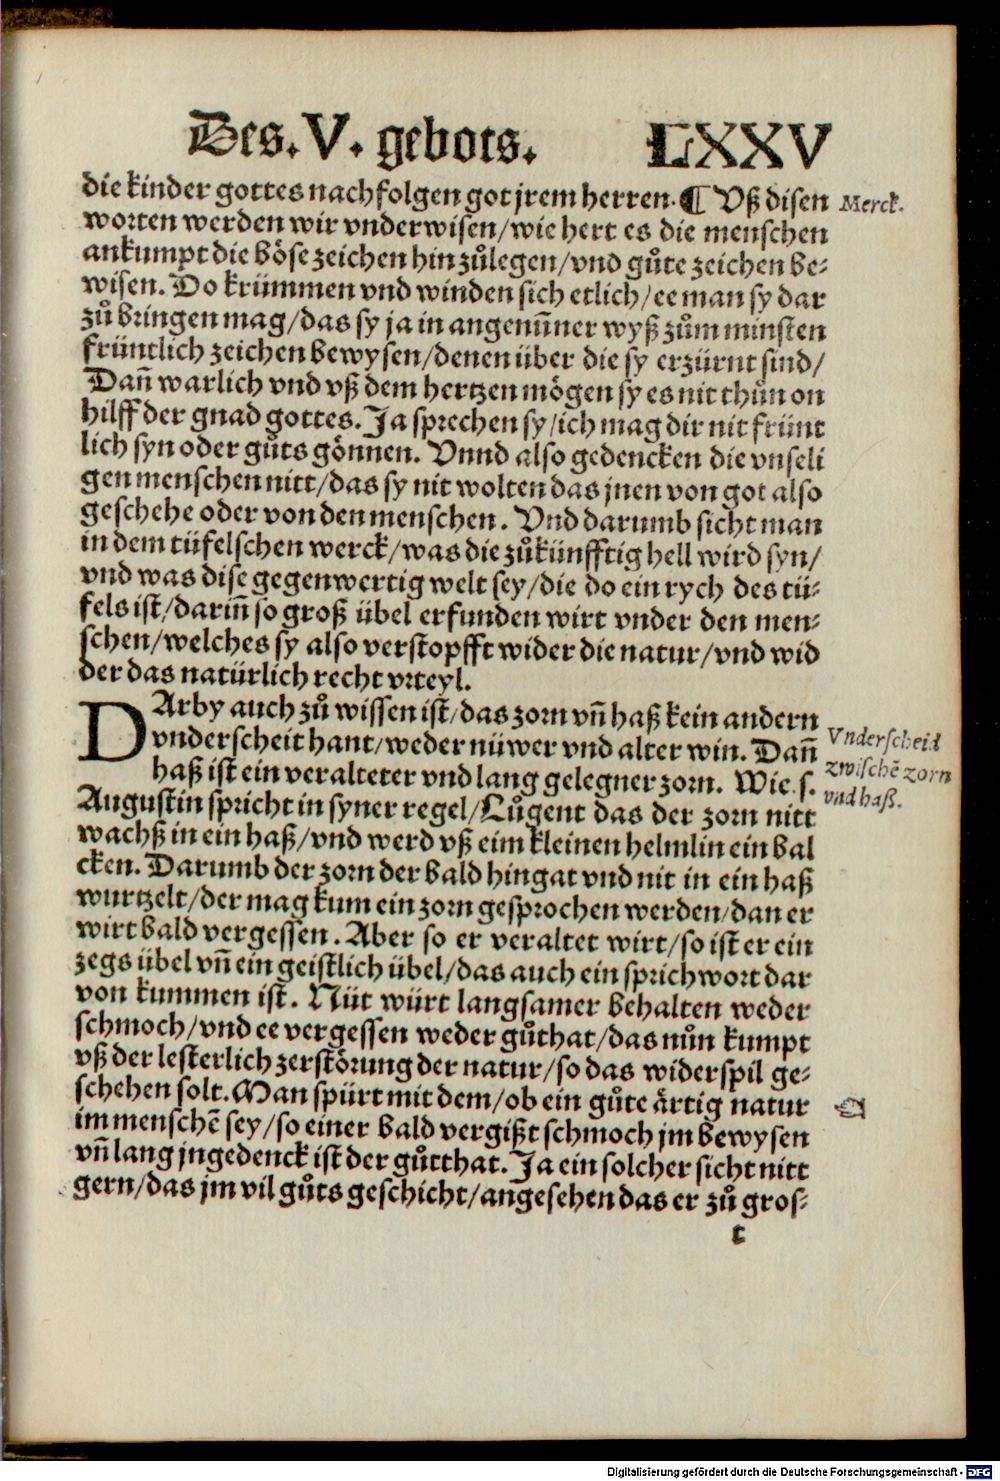 Des. V. gebots. LXXV
die kinder gottes nachfolgen got jrem herren. ¶ Vß disen
Merck.
worten werden wir vnderwisen/wie hert es die menschen
ankumpt die böse zeichen hinzůlegen/vnd gůte zeichen be⸗
wisen. Do krümmen vnd winden sich etlich/ee man sy dar
zů bringen mag/das sy ja in angenūmner wyß zům minsten
früntlich zeichen bewysen/denen über die sy erzürnt sind/
Dañ warlich vnd vß dem hertzen mögen sy es nit thůn on
hilff der gnad gottes. Ja sprechen sy/ich mag dir nit frünt
lich syn oder gůts gönnen. Vnnd also gedencken die vnseli
gen menschen nitt/das sy nit wolten das jnen von got also
geschehe oder von den menschen. Vnd darumb sicht man
in dem tüfelschen werck/was die zůkünfftig hell wird syn/
vnd was dise gegenwertig welt sey/die do ein rych des tü⸗
fels ist/dariñ so groß übel erfunden wirt vnder den men⸗
schen/welches sy also verstopfft wider die natur/vnd wid
der das natürlich recht vrteyl.
DArby auch zů wissen ist/das zorn vñ haß kein andern
vnderscheit hant/weder nüwer vnd alter win. Dañ
Vnderscheid
haß ist ein veralteter vnd lang gelegner zorn. Wie. s.
zwischē zorn
Augustin spricht in syner regel/Lůgent das der zorn nitt
vnd haß.
wachß in ein haß/vnd werd vß eim kleinen helmlin ein bal
cken. Darumb der zorn der bald hingat vnd nit in ein haß
wurtzelt/der mag kum ein zorn gesprochen werden/dan er
wirt bald vergessen. Aber so er veraltet wirt/so ist er ein
zegs übel vñ ein geistlich übel/das auch ein sprichwort dar
von kummen ist. Nüt würt langsamer behalten weder
schmoch/vnd ee vergessen weder gůthat/das nůn kumpt
vß der lesterlich zerstörung der natur/so das widerspil ge⸗
schehen solt. Man spürt mit dem/ob ein gůte ärtig natur
im menschē sey/so einer bald vergißt schmoch jm bewysen
vñ lang jngedenck ist der gůtthat. Ja ein solcher sicht nitt
gern/das jm vil gůts geschicht/angesehen das er zů gros⸗
t
Digitalisierung gefördert durch die Deutsche Forschungsgemeinschaft - DFG